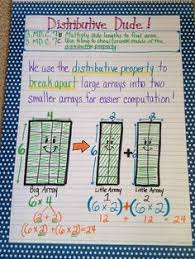 Distributive Dude!
3.MD.C.7b Multiply side lengths to find area.
3.MD.C.7c Use tiling to show
distributive property
We use the distributive property to
break apart large arrays into two
smaller arrays for easier computation!
4 2 2
6
Big Array Little Array Little Array
6 x 4 (6 x 2) + (6 x 2)
(2 + 2) 12 + 12 = 24
(6 x 2) + (6 x 2) = 24